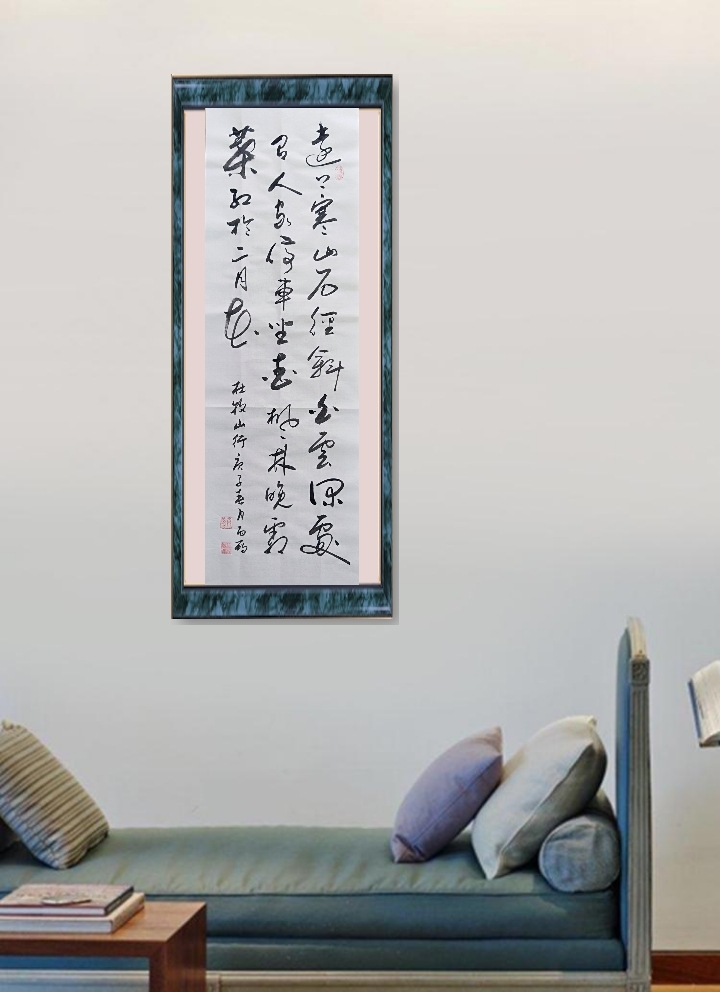 遠上寒山石徑斜白雲深處
有人家停車坐愛楓林晚霜
葉紅於二月花
杜牧山行庚子春月